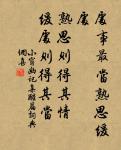 處事最當熟思緩
處
熟思則得其情
緩處則得其當
小窗幽記集醒篇詞典
網